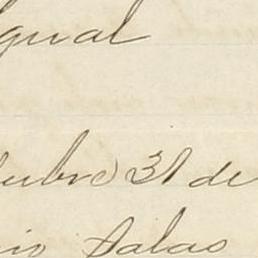 igual
tubre 31 de
rio Salas